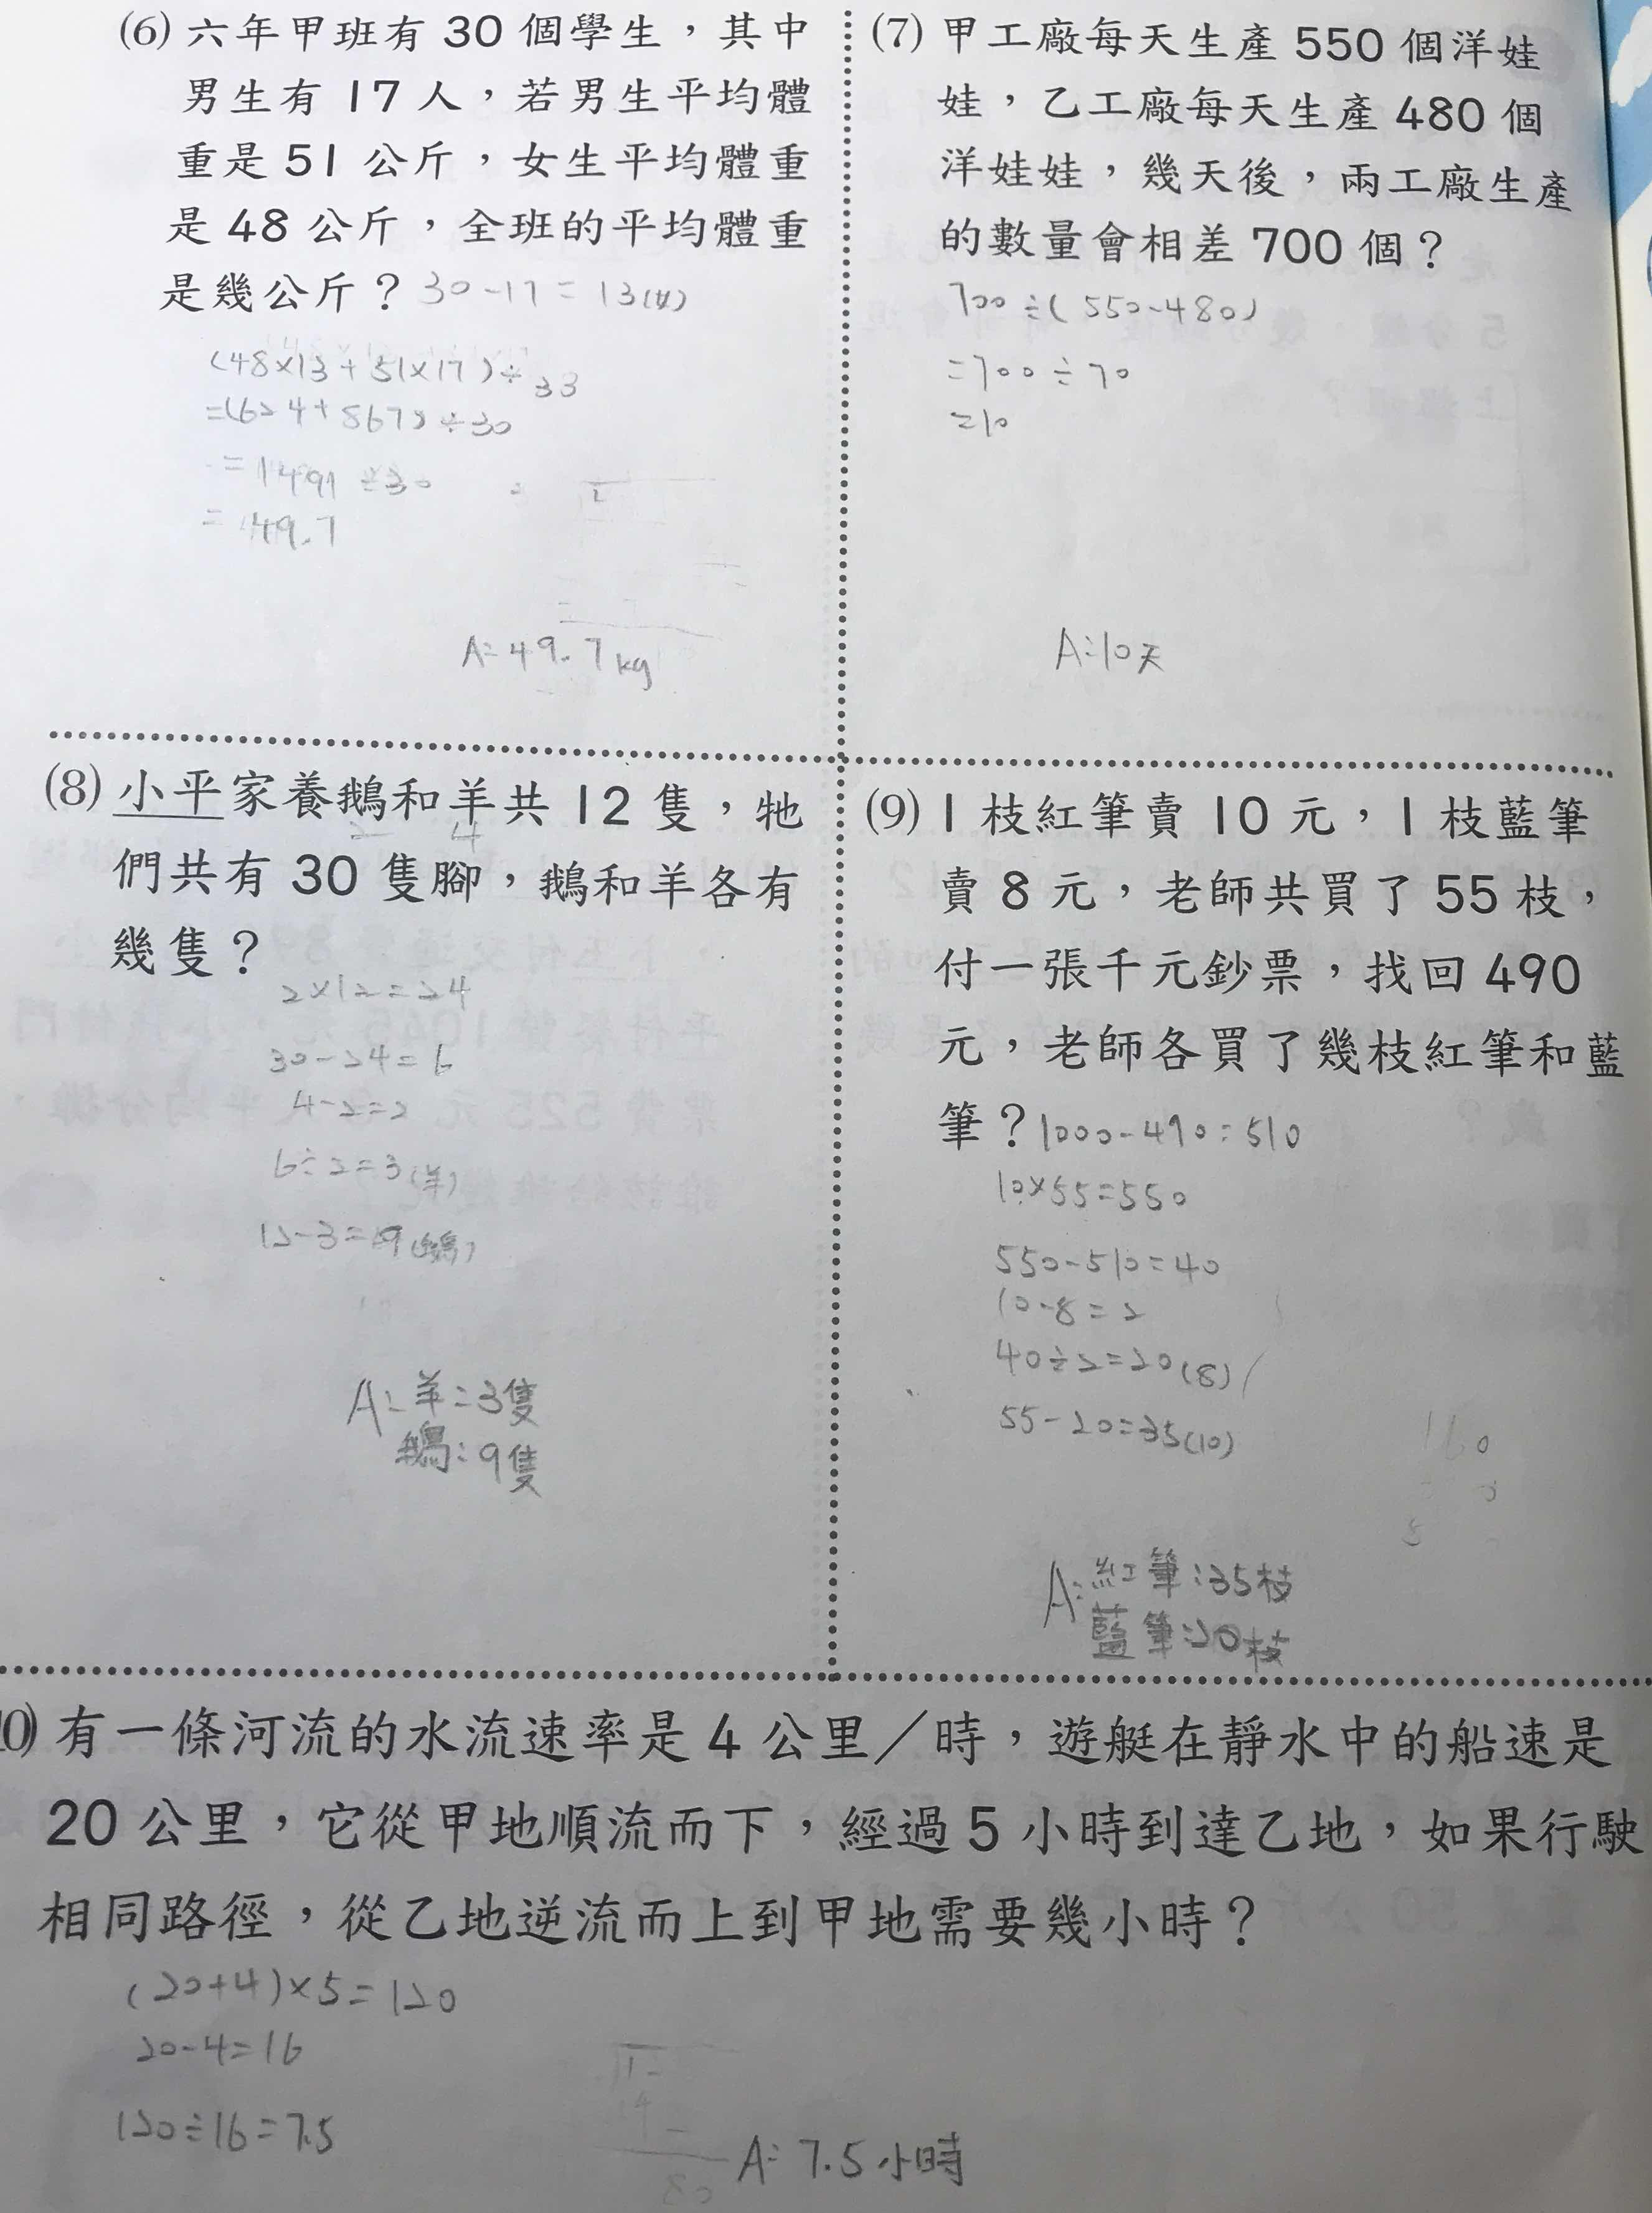 (6) 六年甲班有 30 個學生，其中
男生有 17 人，若男生平均體
重是 51 公斤，女生平均體重
是 48 公斤，全班的平均體重
是幾公斤？ 30-17=13(女)
(48×13+51×17)÷33
=(624+867)÷30
=1491÷30
=49.7
A:49.7kg
(7) 甲工廠每天生產 550 個洋娃
娃，乙工廠每天生產 480 個
洋娃娃，幾天後，兩工廠生產
的數量會相差 700 個？
700÷(550-480)
=700÷70
=10
A:10天
(8) 小平家養鵝和羊共 12 隻，牠
2 4
們共有 30 隻腳，鵝和羊各有
幾隻？
2×12=24
30-24=6
4-2=2
6÷2=3(羊)
12-3=9(鵝)
A:羊:3隻
鵝:9隻
(9) 1 枝紅筆賣 10 元，1 枝藍筆
賣 8 元，老師共買了 55 枝，
付一張千元鈔票，找回 490
元，老師各買了幾枝紅筆和藍
筆？ 1000-490=510
10×55=550
550-510=40
10-8=2
40÷2=20(8)
55-20=35(10)
A:紅筆:35枝
藍筆:20枝
10) 有一條河流的水流速率是 4 公里／時，遊艇在靜水中的船速是
20 公里，它從甲地順流而下，經過 5 小時到達乙地，如果行駛
相同路徑，從乙地逆流而上到甲地需要幾小時？
(20+4)×5=120
20-4=16
120÷16=7.5
A:7.5小時